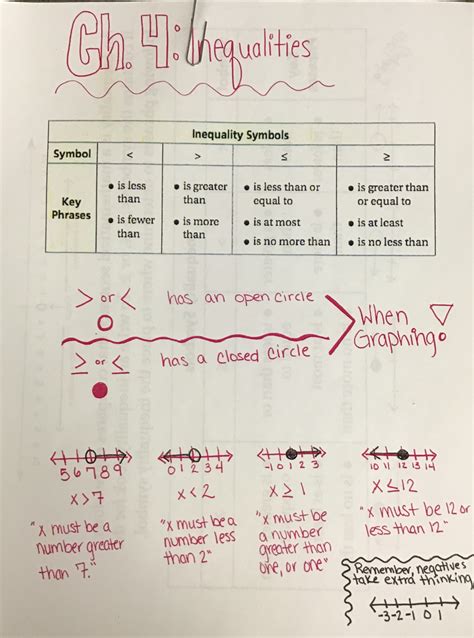 Ch. 4: Inequalities
Inequality Symbols
Symbol < > ≤ ≥
Key Phrases
• is less than
• is fewer than
• is greater than
• is more than
• is less than or equal to
• is at most
• is no more than
• is greater than or equal to
• is at least
• is no less than
> or < has an open circle
≥ or ≤ has a closed circle
When
Graphing
5 6 7 8 9
x > 7
"x must be a
number greater
than 7."
0 1 2 3 4
x < 2
"x must be a
number less
than 2"
-1 0 1 2 3
x ≥ 1
"x must be
a number
greater than
one, or one"
10 11 12 13 14
x ≤ 12
"x must be 12 or
less than 12"
Remember, negatives
take extra thinking
-3 -2 -1 0 1